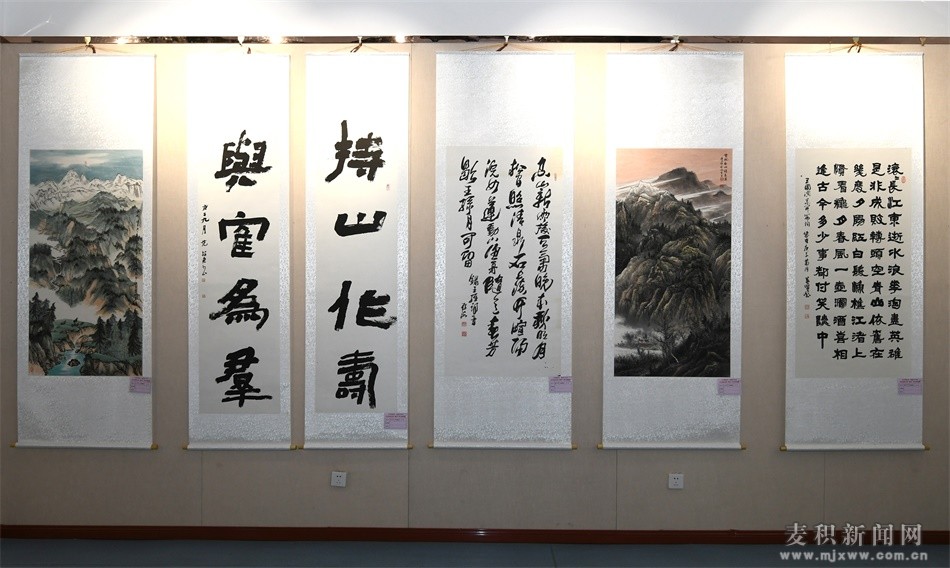 滚長江東逝水浪華淘盡英雄
是非成敗轉頭空青山依舊在
幾度夕陽紅白髮漁樵江渚上
慣看龝月春風一壺濁酒喜相
逢古今多少事都付笑談中
空山新雨後天氣晚來秋明月
松間照清泉石上流竹喧歸
浣女蓮動下漁舟隨意春芳
歇王孫自可留
持山作壽
與寉為羣
麦积新闻网
www.mjxww.com.cn